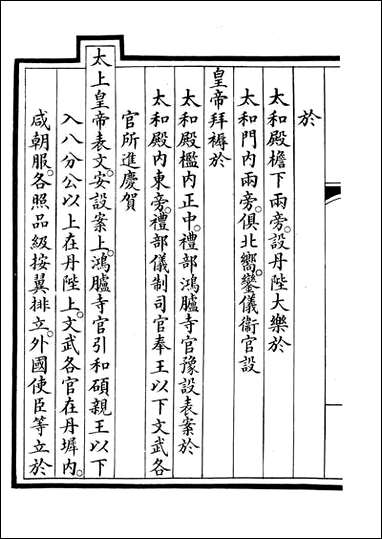 於
太和殿檐下兩旁設丹陛大樂於
太和門内兩旁俱北嚮鑾儀衛官設
皇帝拜褥於
太和殿檻内正中禮部鴻臚寺官豫設表案於
太和殿内東旁禮部儀制司官奉王以下文武各
官所進慶賀
太上皇帝表文安設案上鴻臚寺官引和碩親王以下
入八分公以上在丹陛上文武各官在丹墀内
咸朝服各照品級按翼排立外國使臣等立於